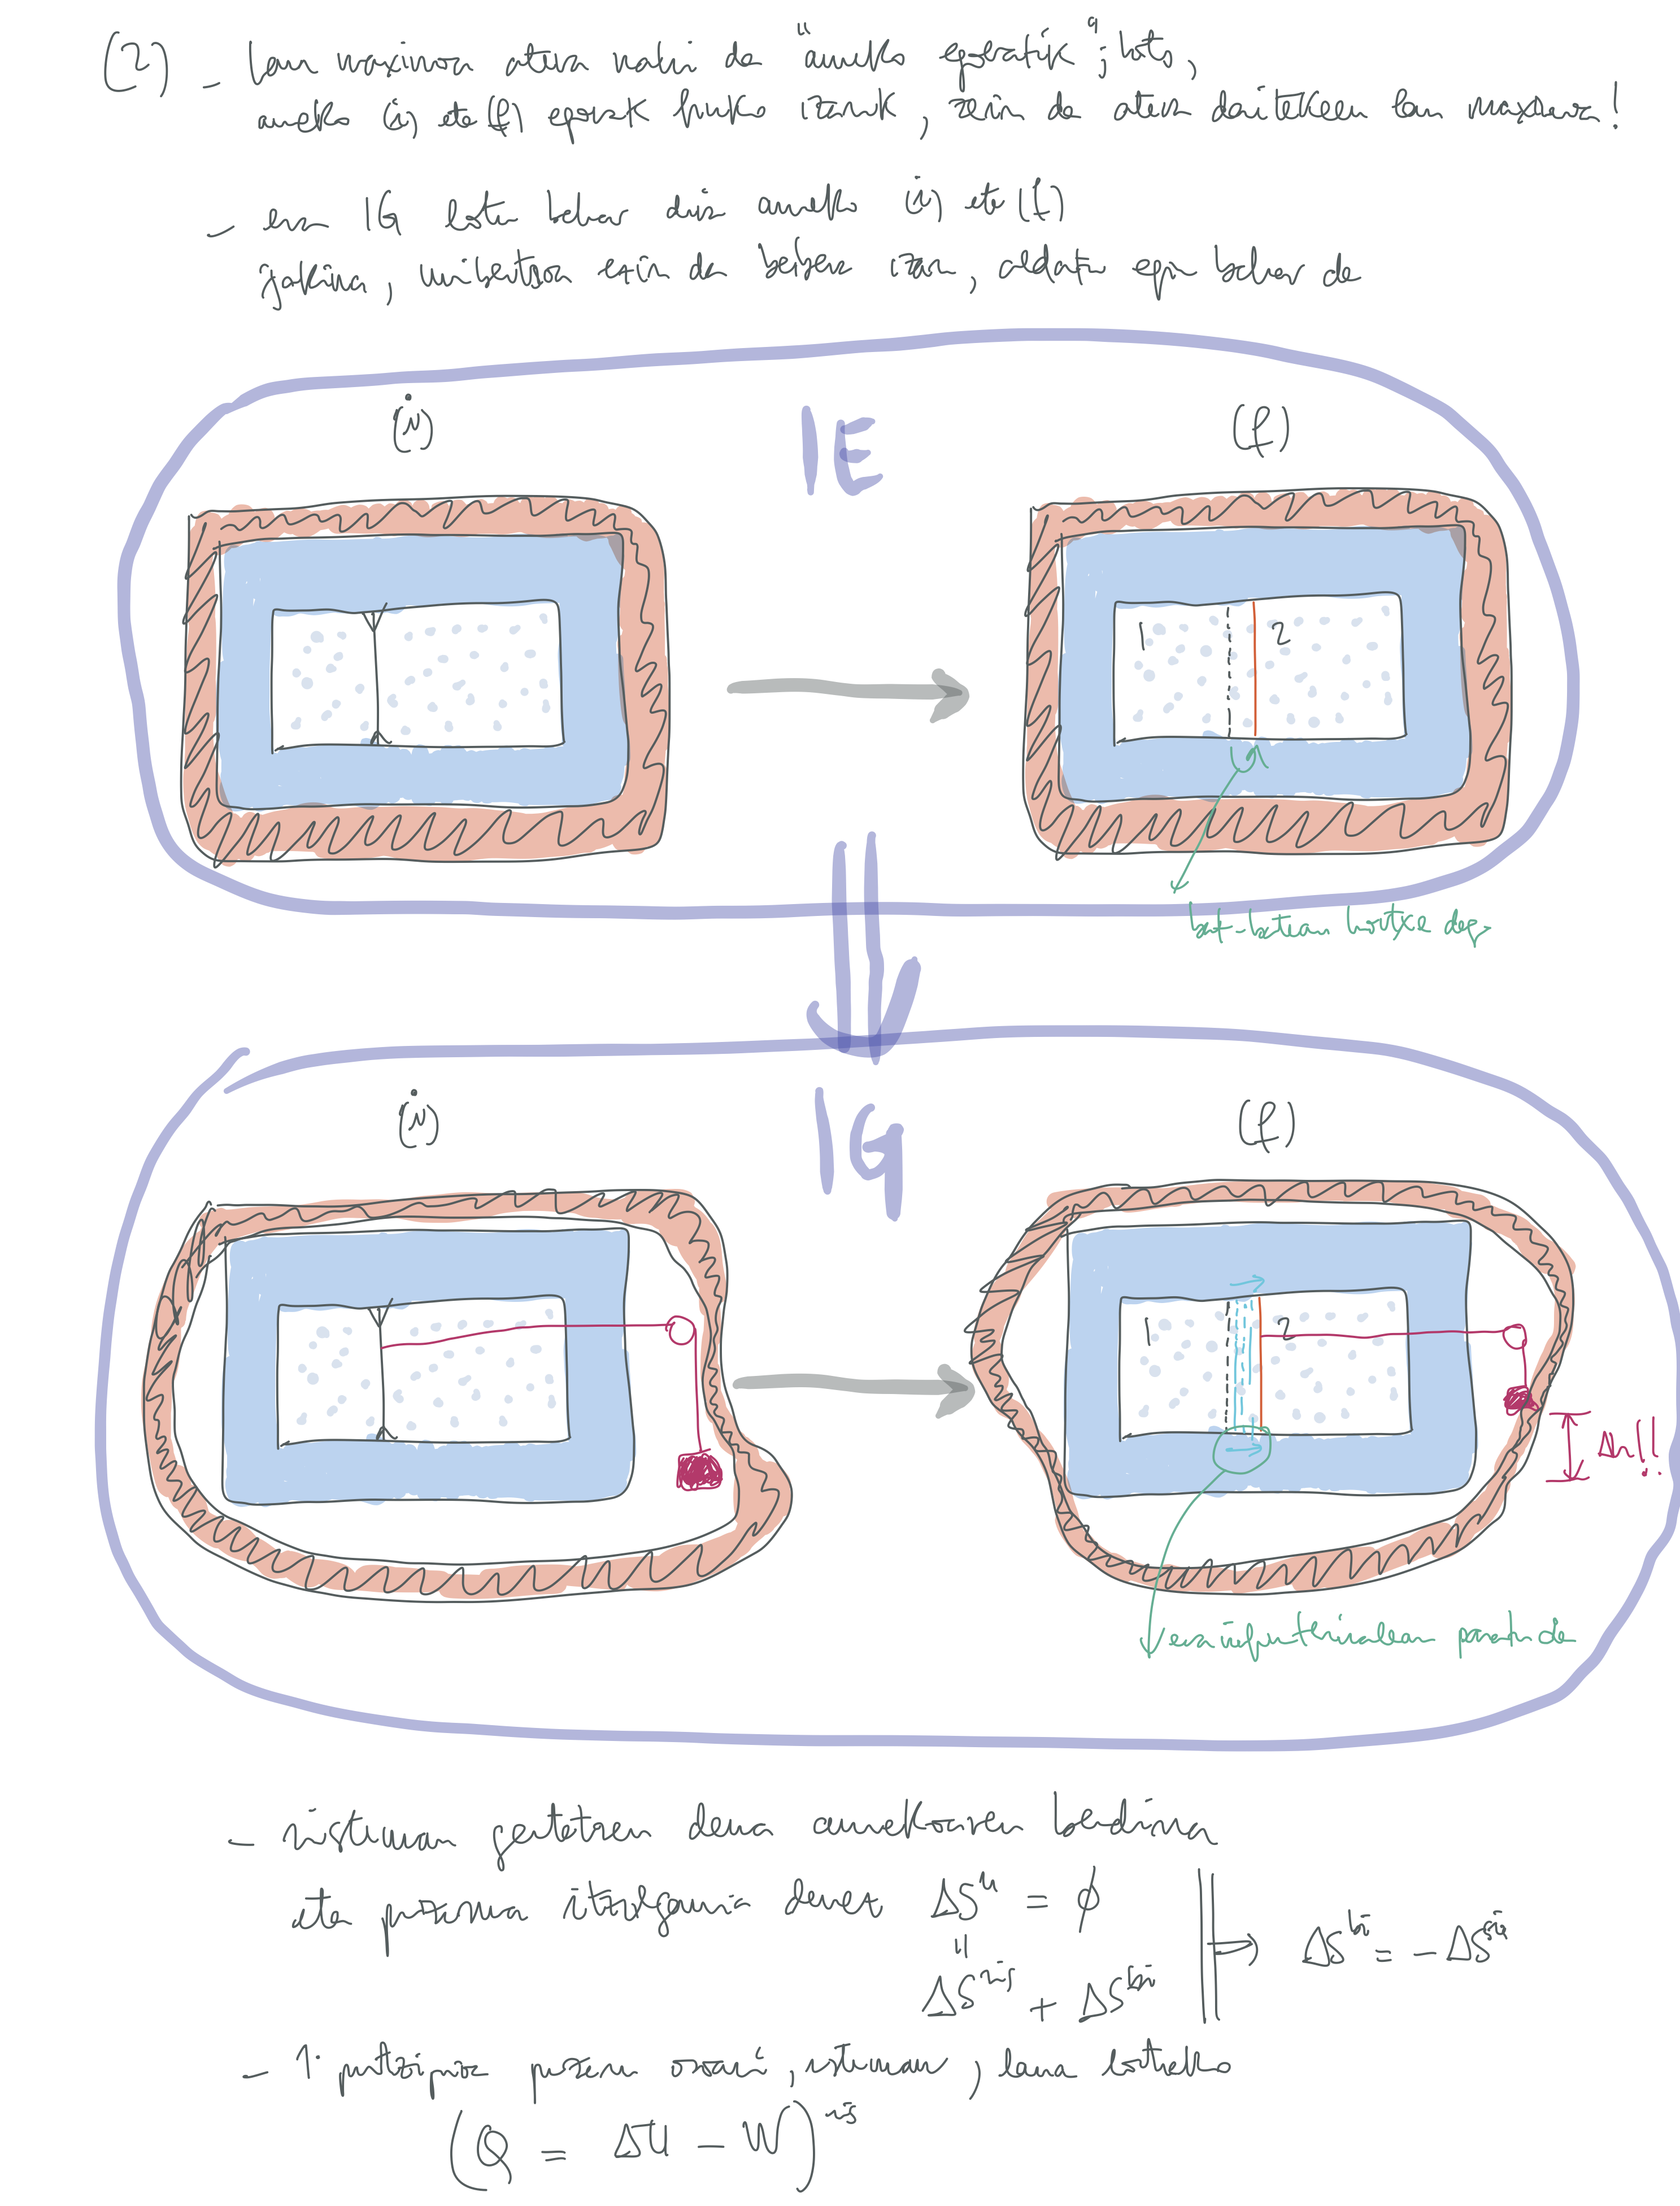 (2) - lan maximoa atera nahi da "aurreko egoeratik"; hots,
aurreko (i) eta (f) egoerak finko izanik, zein da atera daitekeen lan maximoa!
- era IG lotu behar dira aurreko (i) eta (f)
jakina, unibertsoa ezin da berbera izan, aldatu egin behar da
IE
(i)
(f)
1 2
bat-batean gertatu
IG
(i)
(f)
1 2
Δh!!
era infinitesimalean
- sisteman gertatzen dena aurrekoaren berdina
eta prozesua itzulgarria denez ΔSᵘ = ϕ
"
ΔSˢⁱˢ + ΔSⁱⁿ → ΔSⁱⁿ = - ΔSˢⁱˢ
- 1. printzipioa prozesu osoari, sisteman, lana lortzeko
(Q = ΔU - W)ˢⁱˢ